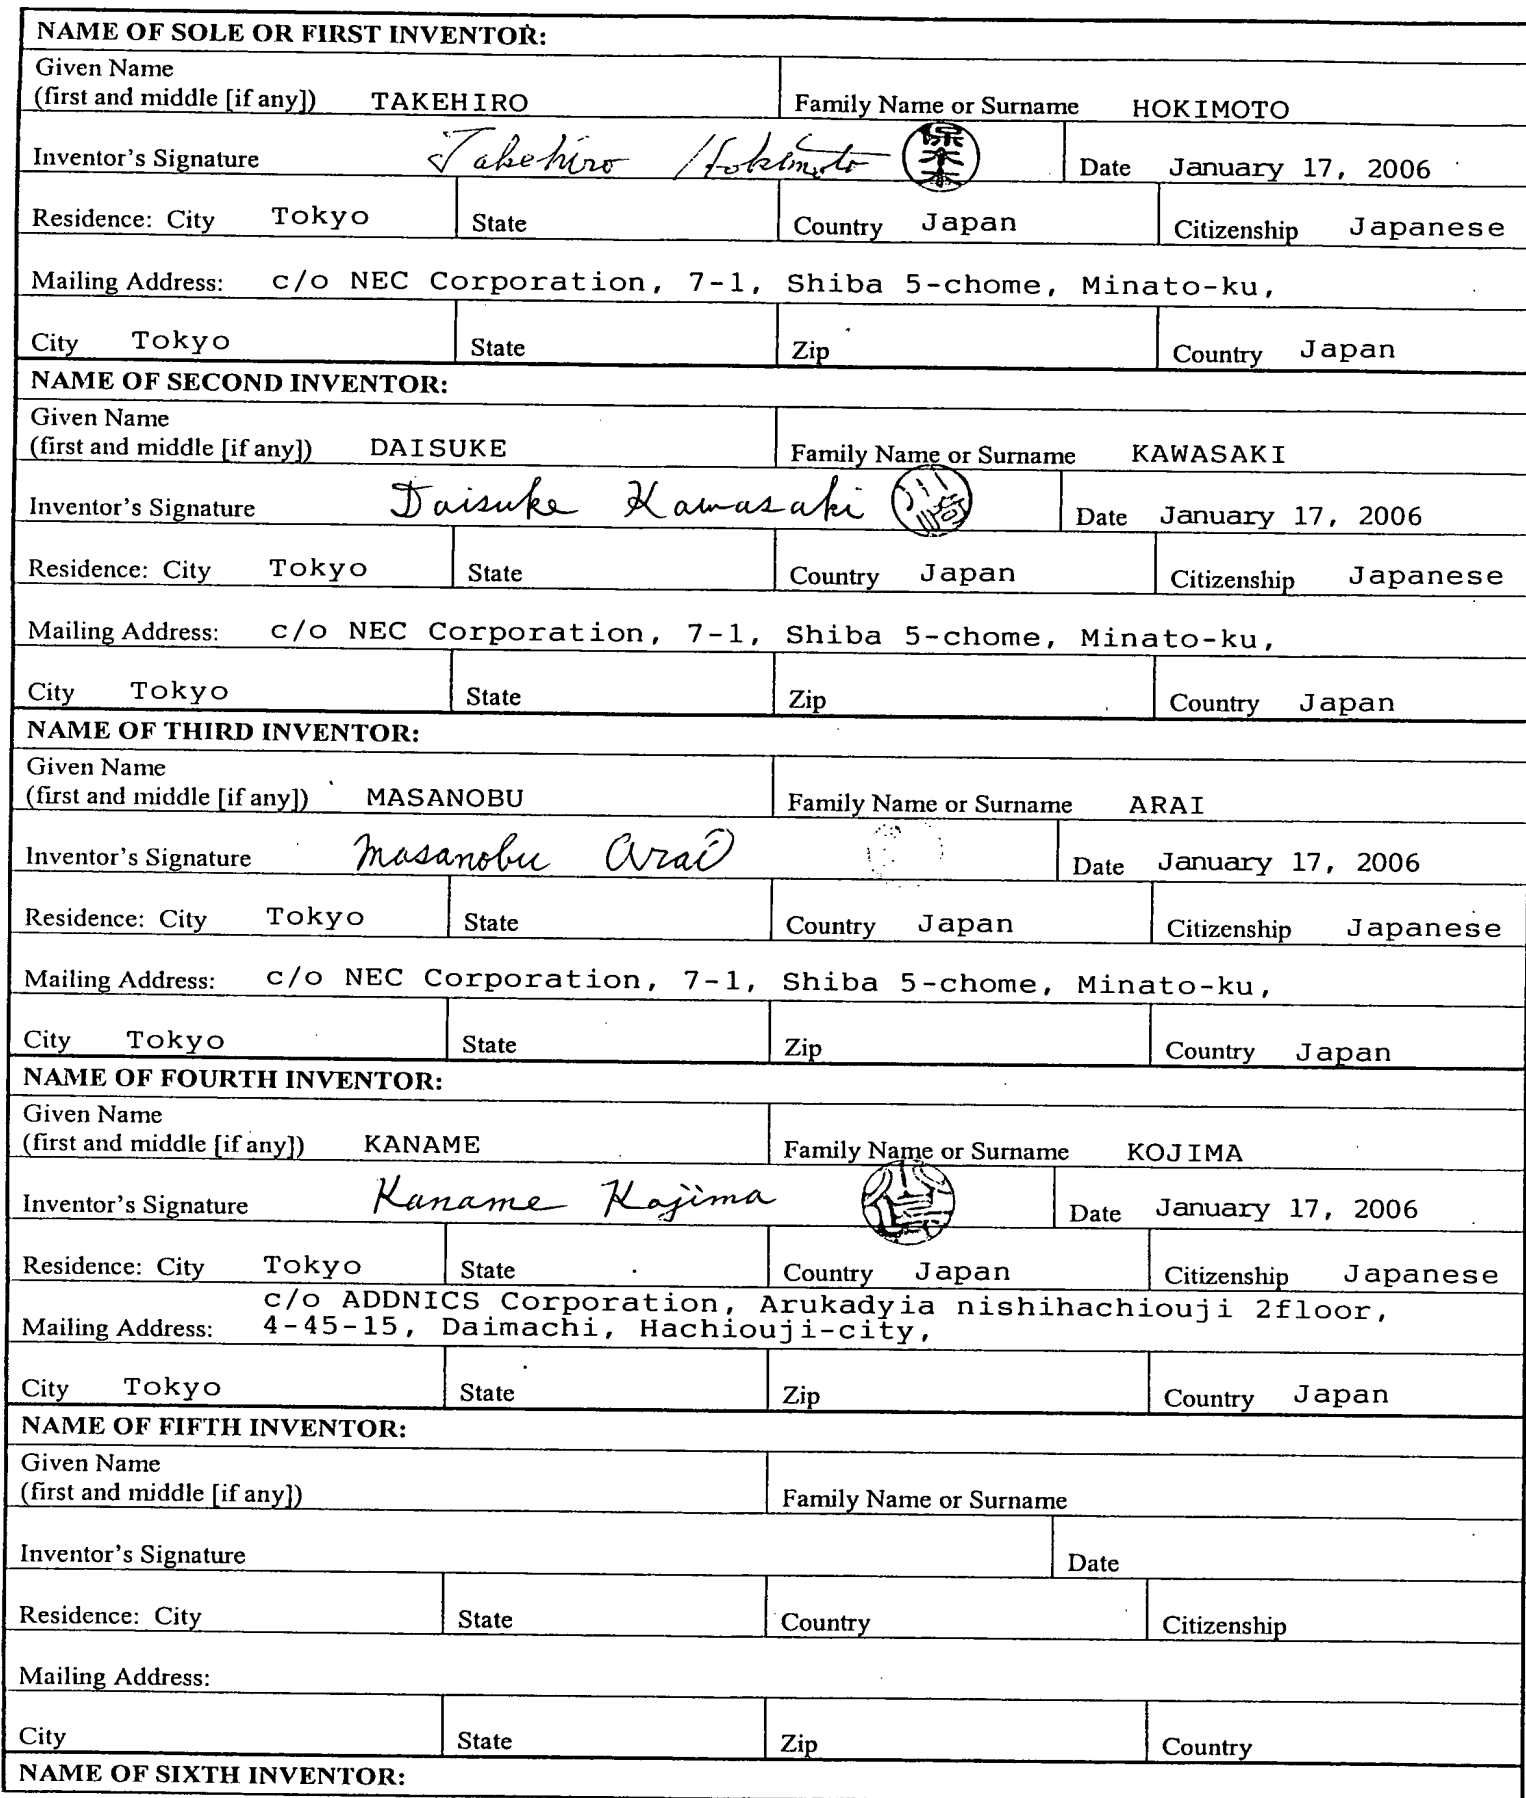 NAME OF SOLE OR FIRST INVENTOR:
Given Name
(first and middle [if any]) TAKEHIRO Family Name or Surname HOKIMOTO
Inventor's Signature Takehiro Hokimoto 保木本 Date January 17, 2006
Residence: City Tokyo State Country Japan Citizenship Japanese
Mailing Address: c/o NEC Corporation, 7-1, Shiba 5-chome, Minato-ku,
City Tokyo State Zip Country Japan
NAME OF SECOND INVENTOR:
Given Name
(first and middle [if any]) DAISUKE Family Name or Surname KAWASAKI
Inventor's Signature Daisuke Kawasaki 川崎 Date January 17, 2006
Residence: City Tokyo State Country Japan Citizenship Japanese
Mailing Address: c/o NEC Corporation, 7-1, Shiba 5-chome, Minato-ku,
City Tokyo State Zip Country Japan
NAME OF THIRD INVENTOR:
Given Name
(first and middle [if any]) MASANOBU Family Name or Surname ARAI
Inventor's Signature Masanobu Arai Date January 17, 2006
Residence: City Tokyo State Country Japan Citizenship Japanese
Mailing Address: c/o NEC Corporation, 7-1, Shiba 5-chome, Minato-ku,
City Tokyo State Zip Country Japan
NAME OF FOURTH INVENTOR:
Given Name
(first and middle [if any]) KANAME Family Name or Surname KOJIMA
Inventor's Signature Kaname Kojima Date January 17, 2006
Residence: City Tokyo State Country Japan Citizenship Japanese
c/o ADDNICS Corporation, Arukadyia nishihachiouji 2floor,
Mailing Address: 4-45-15, Daimachi, Hachiouji-city,
City Tokyo State Zip Country Japan
NAME OF FIFTH INVENTOR:
Given Name
(first and middle [if any]) Family Name or Surname
Inventor's Signature Date
Residence: City State Country Citizenship
Mailing Address:
City State Zip Country
NAME OF SIXTH INVENTOR: